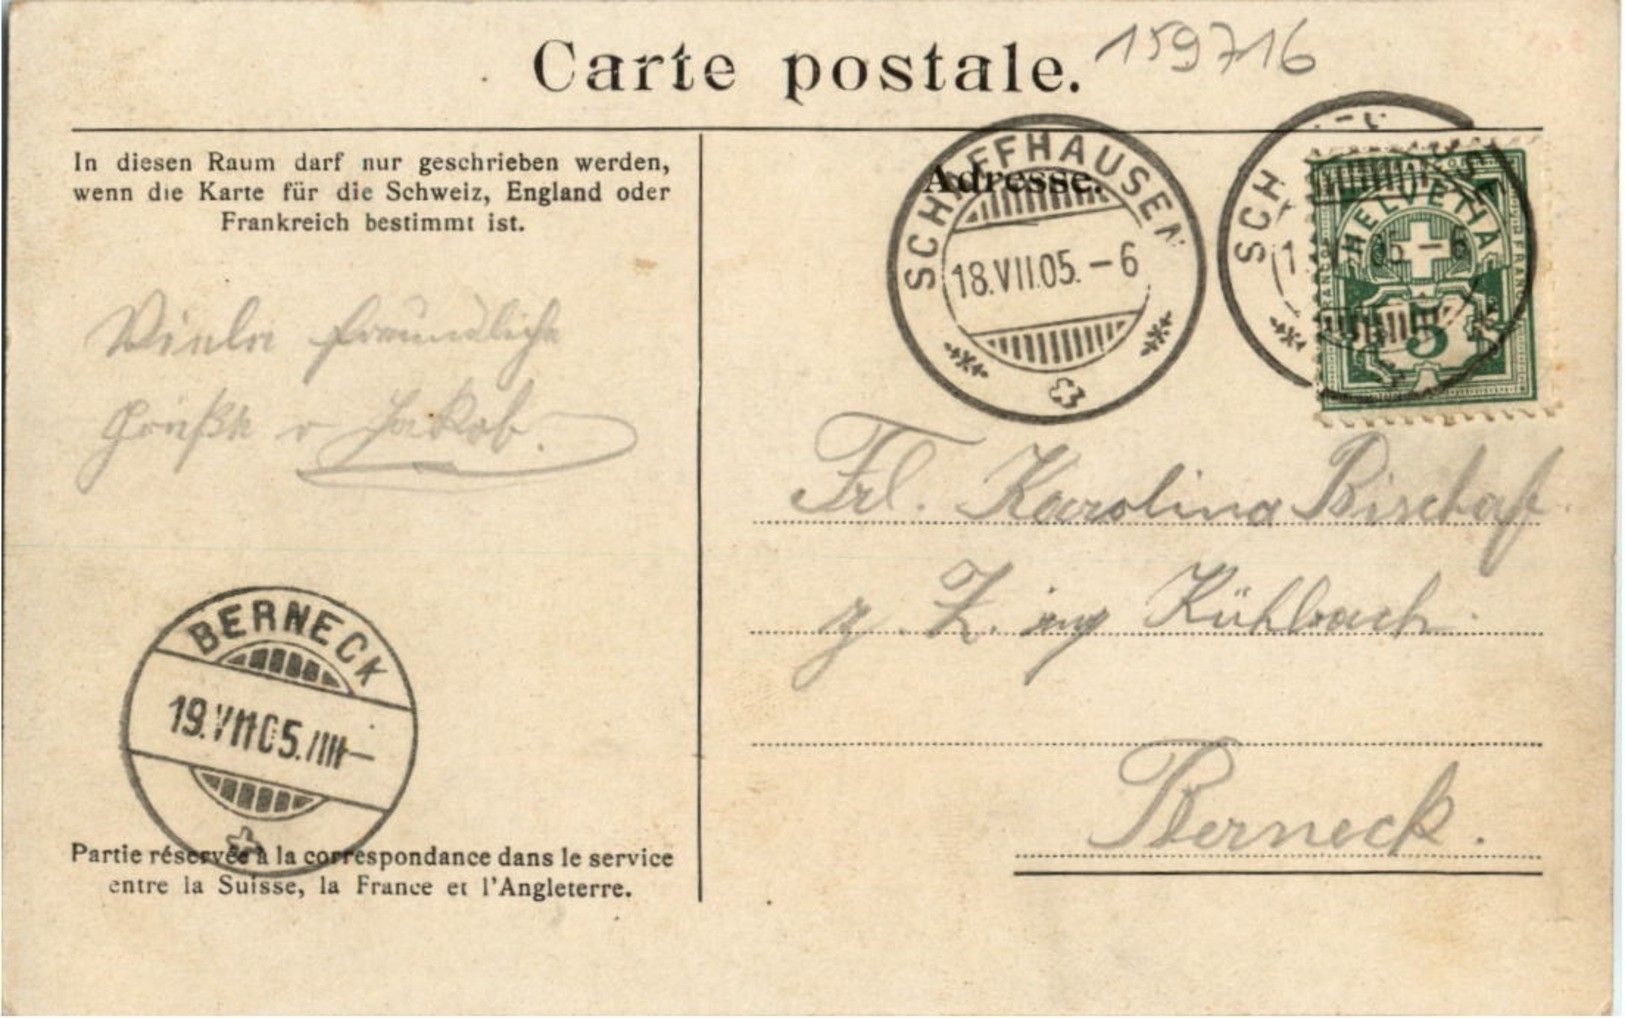 Carte postale.
159716
In diesen Raum darf nur geschrieben werden,
wenn die Karte für die Schweiz, England oder
Frankreich bestimmt ist.
Adresse.
SCHAFFHAUSEN
18.VII.05.-6
SCH
05-6
HELVETIA
FRANCO
FRANCO
5
Viele freundliche
Grüße v Jakob.
Frl. Karolina Bischof.
z. Z. im Kühlbach.
Berneck.
BERNECK
19.VII05.IIII-
Partie réservée à la correspondance dans le service
entre la Suisse, la France et l'Angleterre.